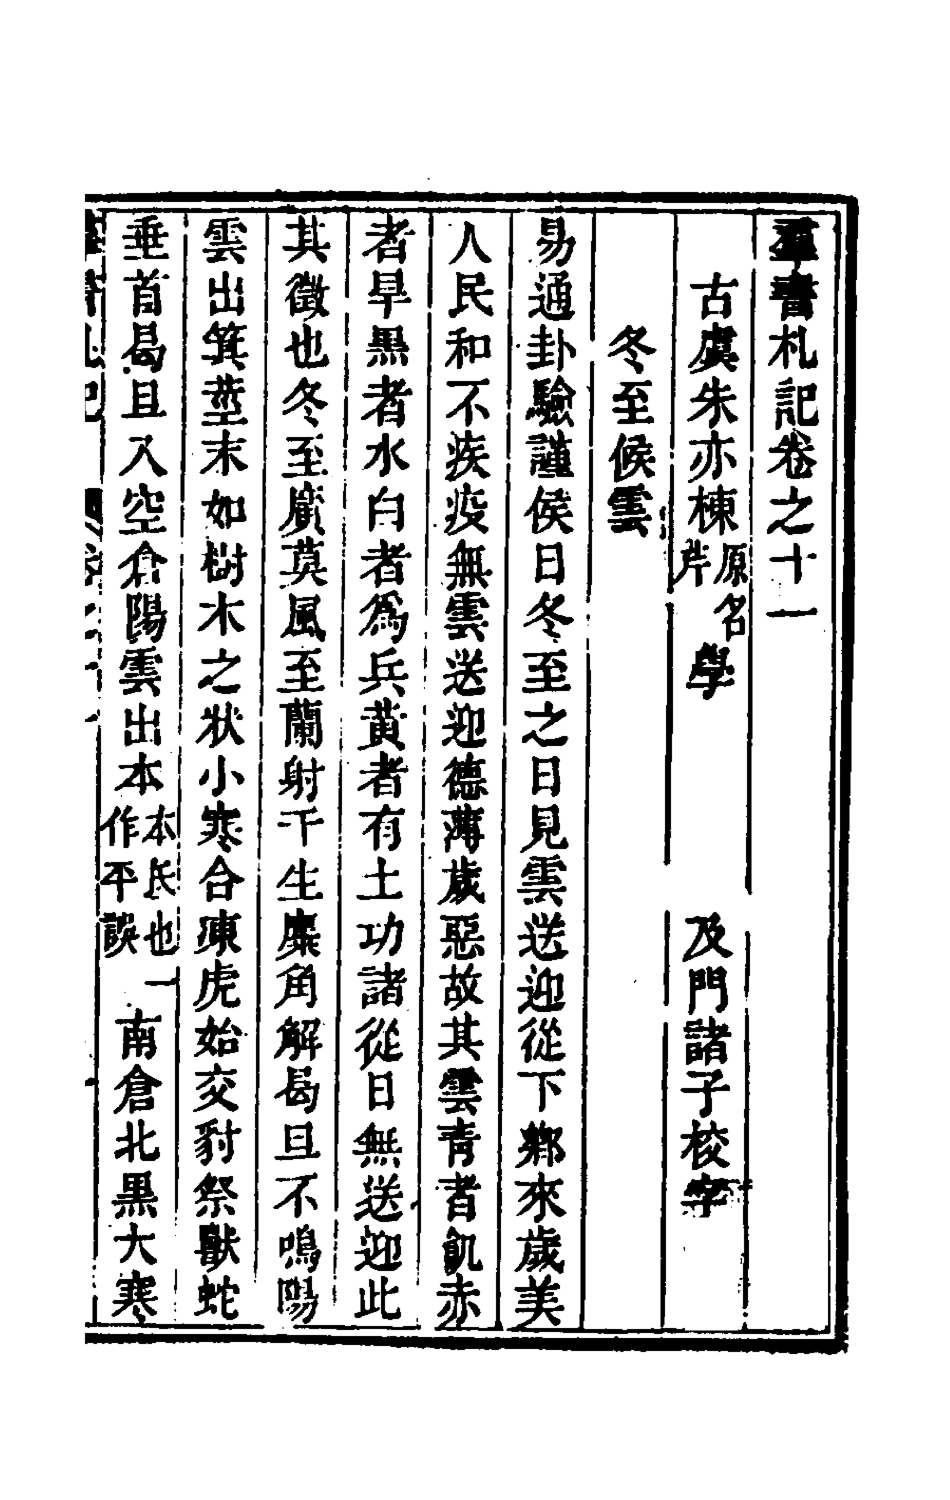 羣書札記卷之十一
古虞朱亦棟原名芹學 及門諸子校字
冬至候雲
易通卦驗謹侯日冬至之日見雲送迎從下鄉來歲美
人民和不疾疫無雲送迎德薄歲惡故其雲青者飢赤
者旱黑者水白者為兵黃者有土功諸從日無送迎此
其徵也冬至廣莫風至蘭射干生麋角解曷旦不鳴陽
雲出箕莖末如樹木之狀小寒合凍虎始交豺祭獸蛇
垂首曷旦入空倉陽雲出本本氐也一作平誤南倉北黑大寒